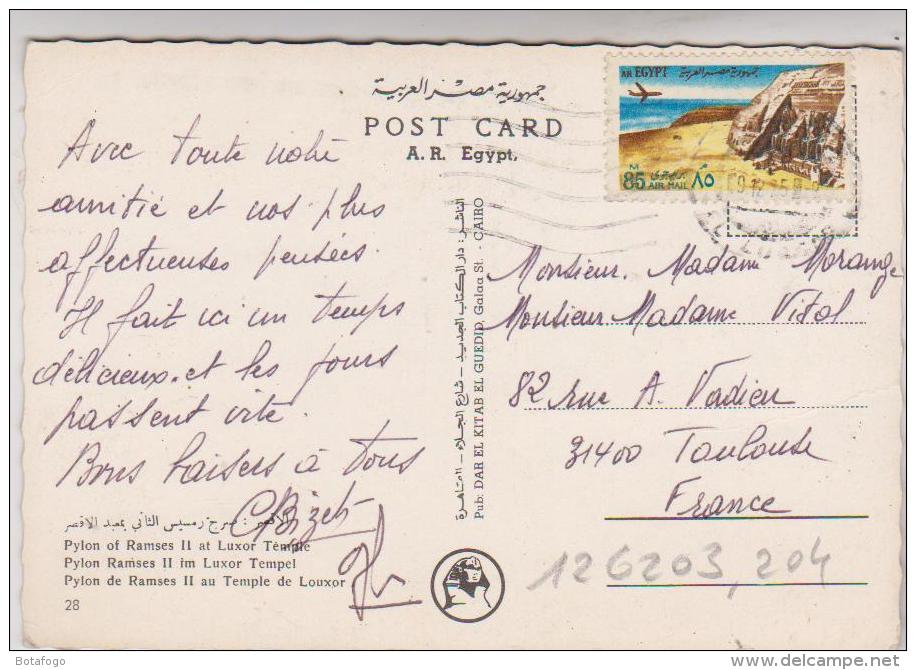 جمهورية مصر العربية
POST CARD
A. R. Egypt.
AR EGYPT جمهورية مصر العربية
M 85 AIR MAIL بريد جوى ٨٥ م
Avec toute notre
amitié et nos plus
affectueuses pensées.
Il fait ici un temps
délicieux. et les jours
passent vite.
Bons baisers à tous
CBizet
الناشر : دار الكتاب الجديد — شارع الجلاء — القاهرة
Pub: DAR EL KITAB EL GUEDID, Galaa St. CAIRO
Monsieur. Madame Morange
Monsieur Madame Vidal
82 rue A. Vadieu
31400 Toulouse
France
الاقصر : صرح رمسيس الثاني بمعبد الاقصر
Pylon of Ramses II at Luxor Temple
Pylon Ramses II im Luxor Tempel
Pylon de Ramses II au Temple de Louxor
28
126203,204
Botafogo
delcampe.net